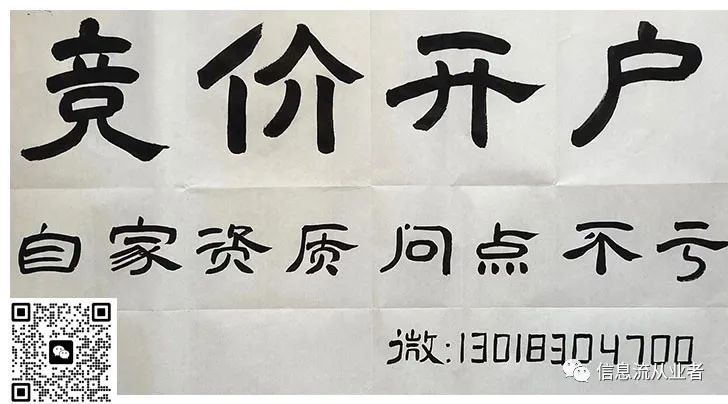 竞价开户
自家资质问点不亏
微:13018304700
信息流从业者